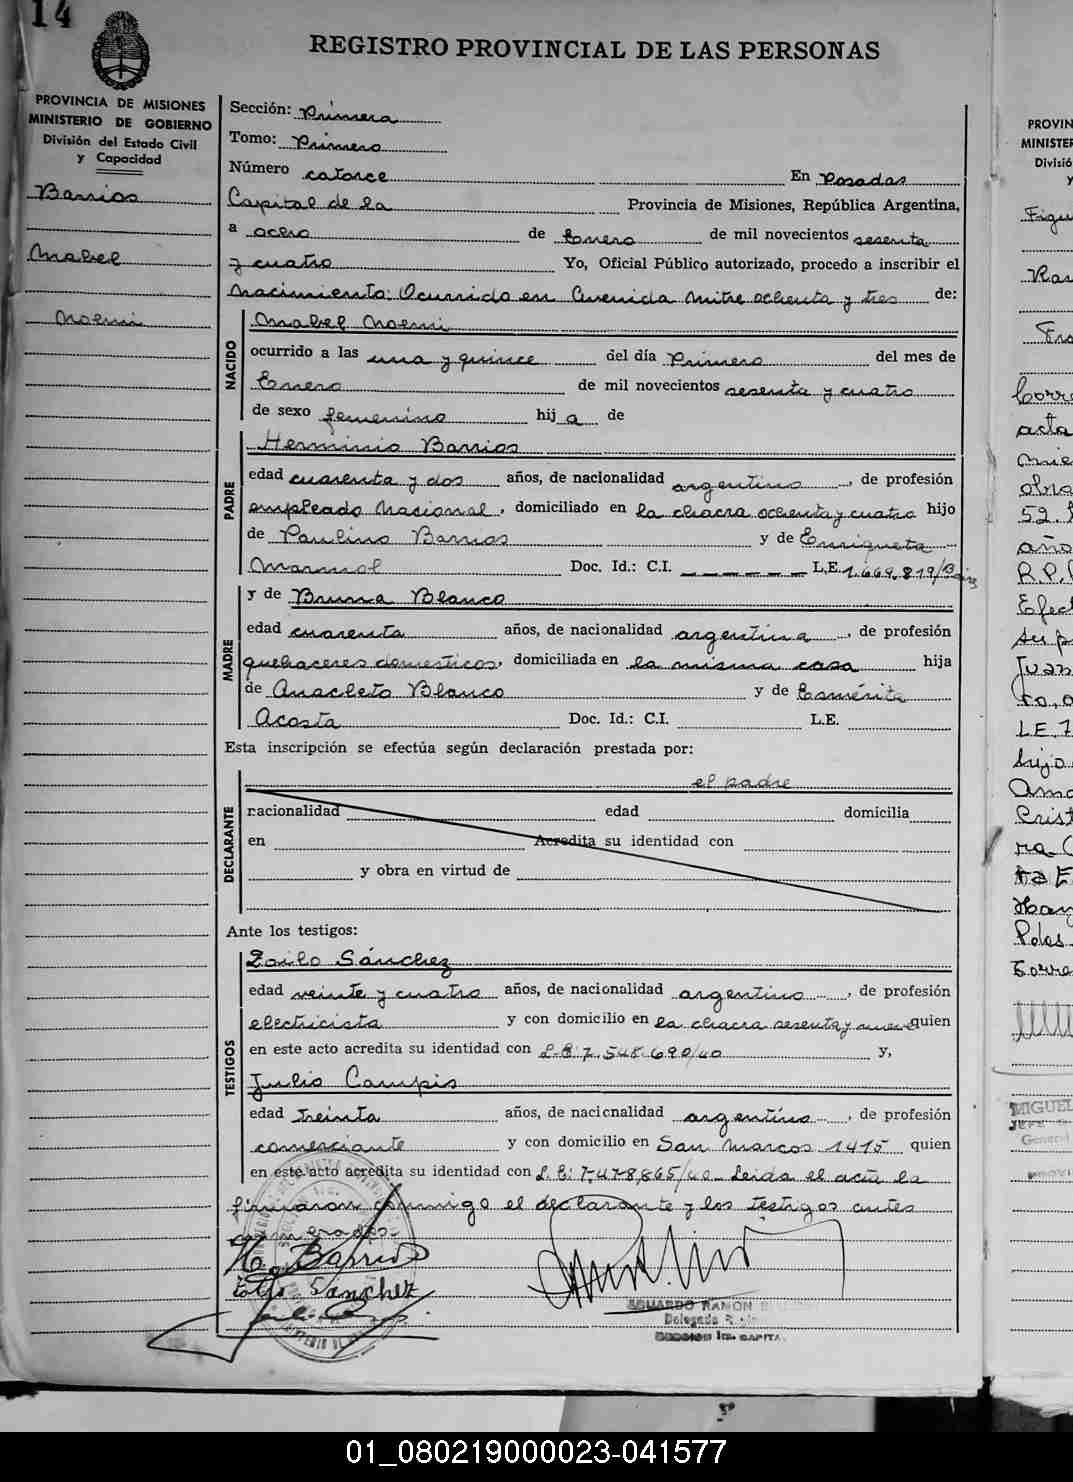 14
REGISTRO PROVINCIAL DE LAS PERSONAS
PROVINCIA DE MISIONES
MINISTERIO DE GOBIERNO
División del Estado Civil
y Capacidad
Barrios
Mabel
Noemi
Sección: Primera
Tomo: Primero
Número catorce En Posadas
Capital de la Provincia de Misiones, República Argentina,
a ocho de Enero de mil novecientos sesenta
y cuatro Yo, Oficial Público autorizado, procedo a inscribir el
Nacimiento: Ocurrido en Avenida Mitre ochenta y tres de:
NACIDO
Mabel Noemi
ocurrido a las una y quince del día Primero del mes de
Enero de mil novecientos sesenta y cuatro
de sexo femenino hij a de
PADRE
Herminio Barrios
edad cuarenta y dos años, de nacionalidad argentino, de profesión
empleado Nacional, domiciliado en la chacra ochenta y cuatro hijo
de Paulino Barrios y de Enriqueta
Marmol Doc. Id.: C.I. — — — — — — L.E. 1.669.819/
MADRE
y de Bruna Blanco
edad cuarenta años, de nacionalidad argentina, de profesión
quehaceres domesticos, domiciliada en la misma casa hija
de Anacleto Blanco y de Esmérita
Acosta Doc. Id.: C.I. L.E.
Esta inscripción se efectúa según declaración prestada por:
DECLARANTE
el padre
nacionalidad edad domicilia
en Acredita su identidad con
y obra en virtud de
Ante los testigos:
TESTIGOS
Zoilo Sánchez
edad veinte y cuatro años, de nacionalidad argentino, de profesión
electricista y con domicilio en la chacra sesenta y nueve quien
en este acto acredita su identidad con L.E: 7.548.690/40 y,
Julio Campis
edad treinta años, de nacionalidad argentino, de profesión
comerciante y con domicilio en San Marcos 1415 quien
en este acto acredita su identidad con L.E: 7.478,865/40_ Leida el acta la
firmaron conmigo el declarante y los testigos antes
H. Barrios
Zoilo Sánchez
EDUARDO RAMON
Delegado
SECCION 1ra. CAPITAL
PROVIN
MINISTER
Divisió
y
Figu
Ra
Fra
Corre
acta
obra
52.
año
R.P.
Efect
su p
Juan
ro, a
L.E.7
hijo
Ama
Crist
ra
MIGUEL
JEFE
General
01_080219000023-041577